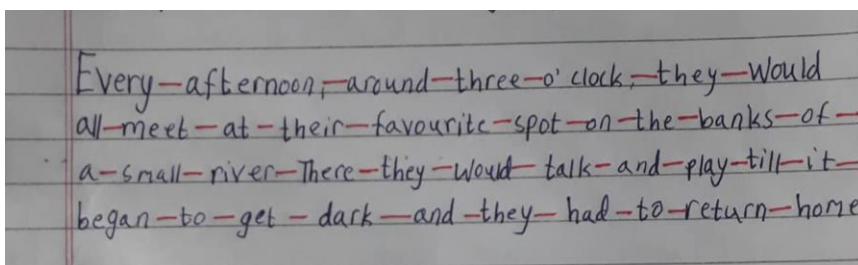 Every-afternoon,-around-three-o'clock,-they-Would
all-meet-at-their-favourite-spot-on-the-banks-of-
a-small-river-There-they-would-talk-and-play-till-it-
began-to-get-dark-and-they-had-to-return-home